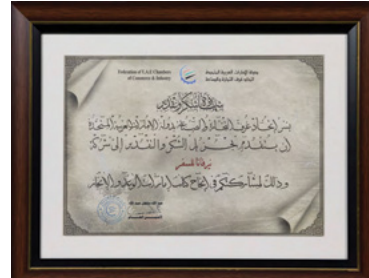 Federation of U.A.E Chambers
of Commerce & Industry
دولة الإمارات العربية المتحدة
اتحاد غرف التجارة والصناعة
شهادة شكر وتقدير
يسر اتحاد غرف التجارة والصناعة بدولة الإمارات العربية المتحدة
أن يتقدم بالشكر والتقدير إلى شركة
وذلك لمشاركتكم في إنجاح
عبد الله سلطان عبد الله
الأمين العام